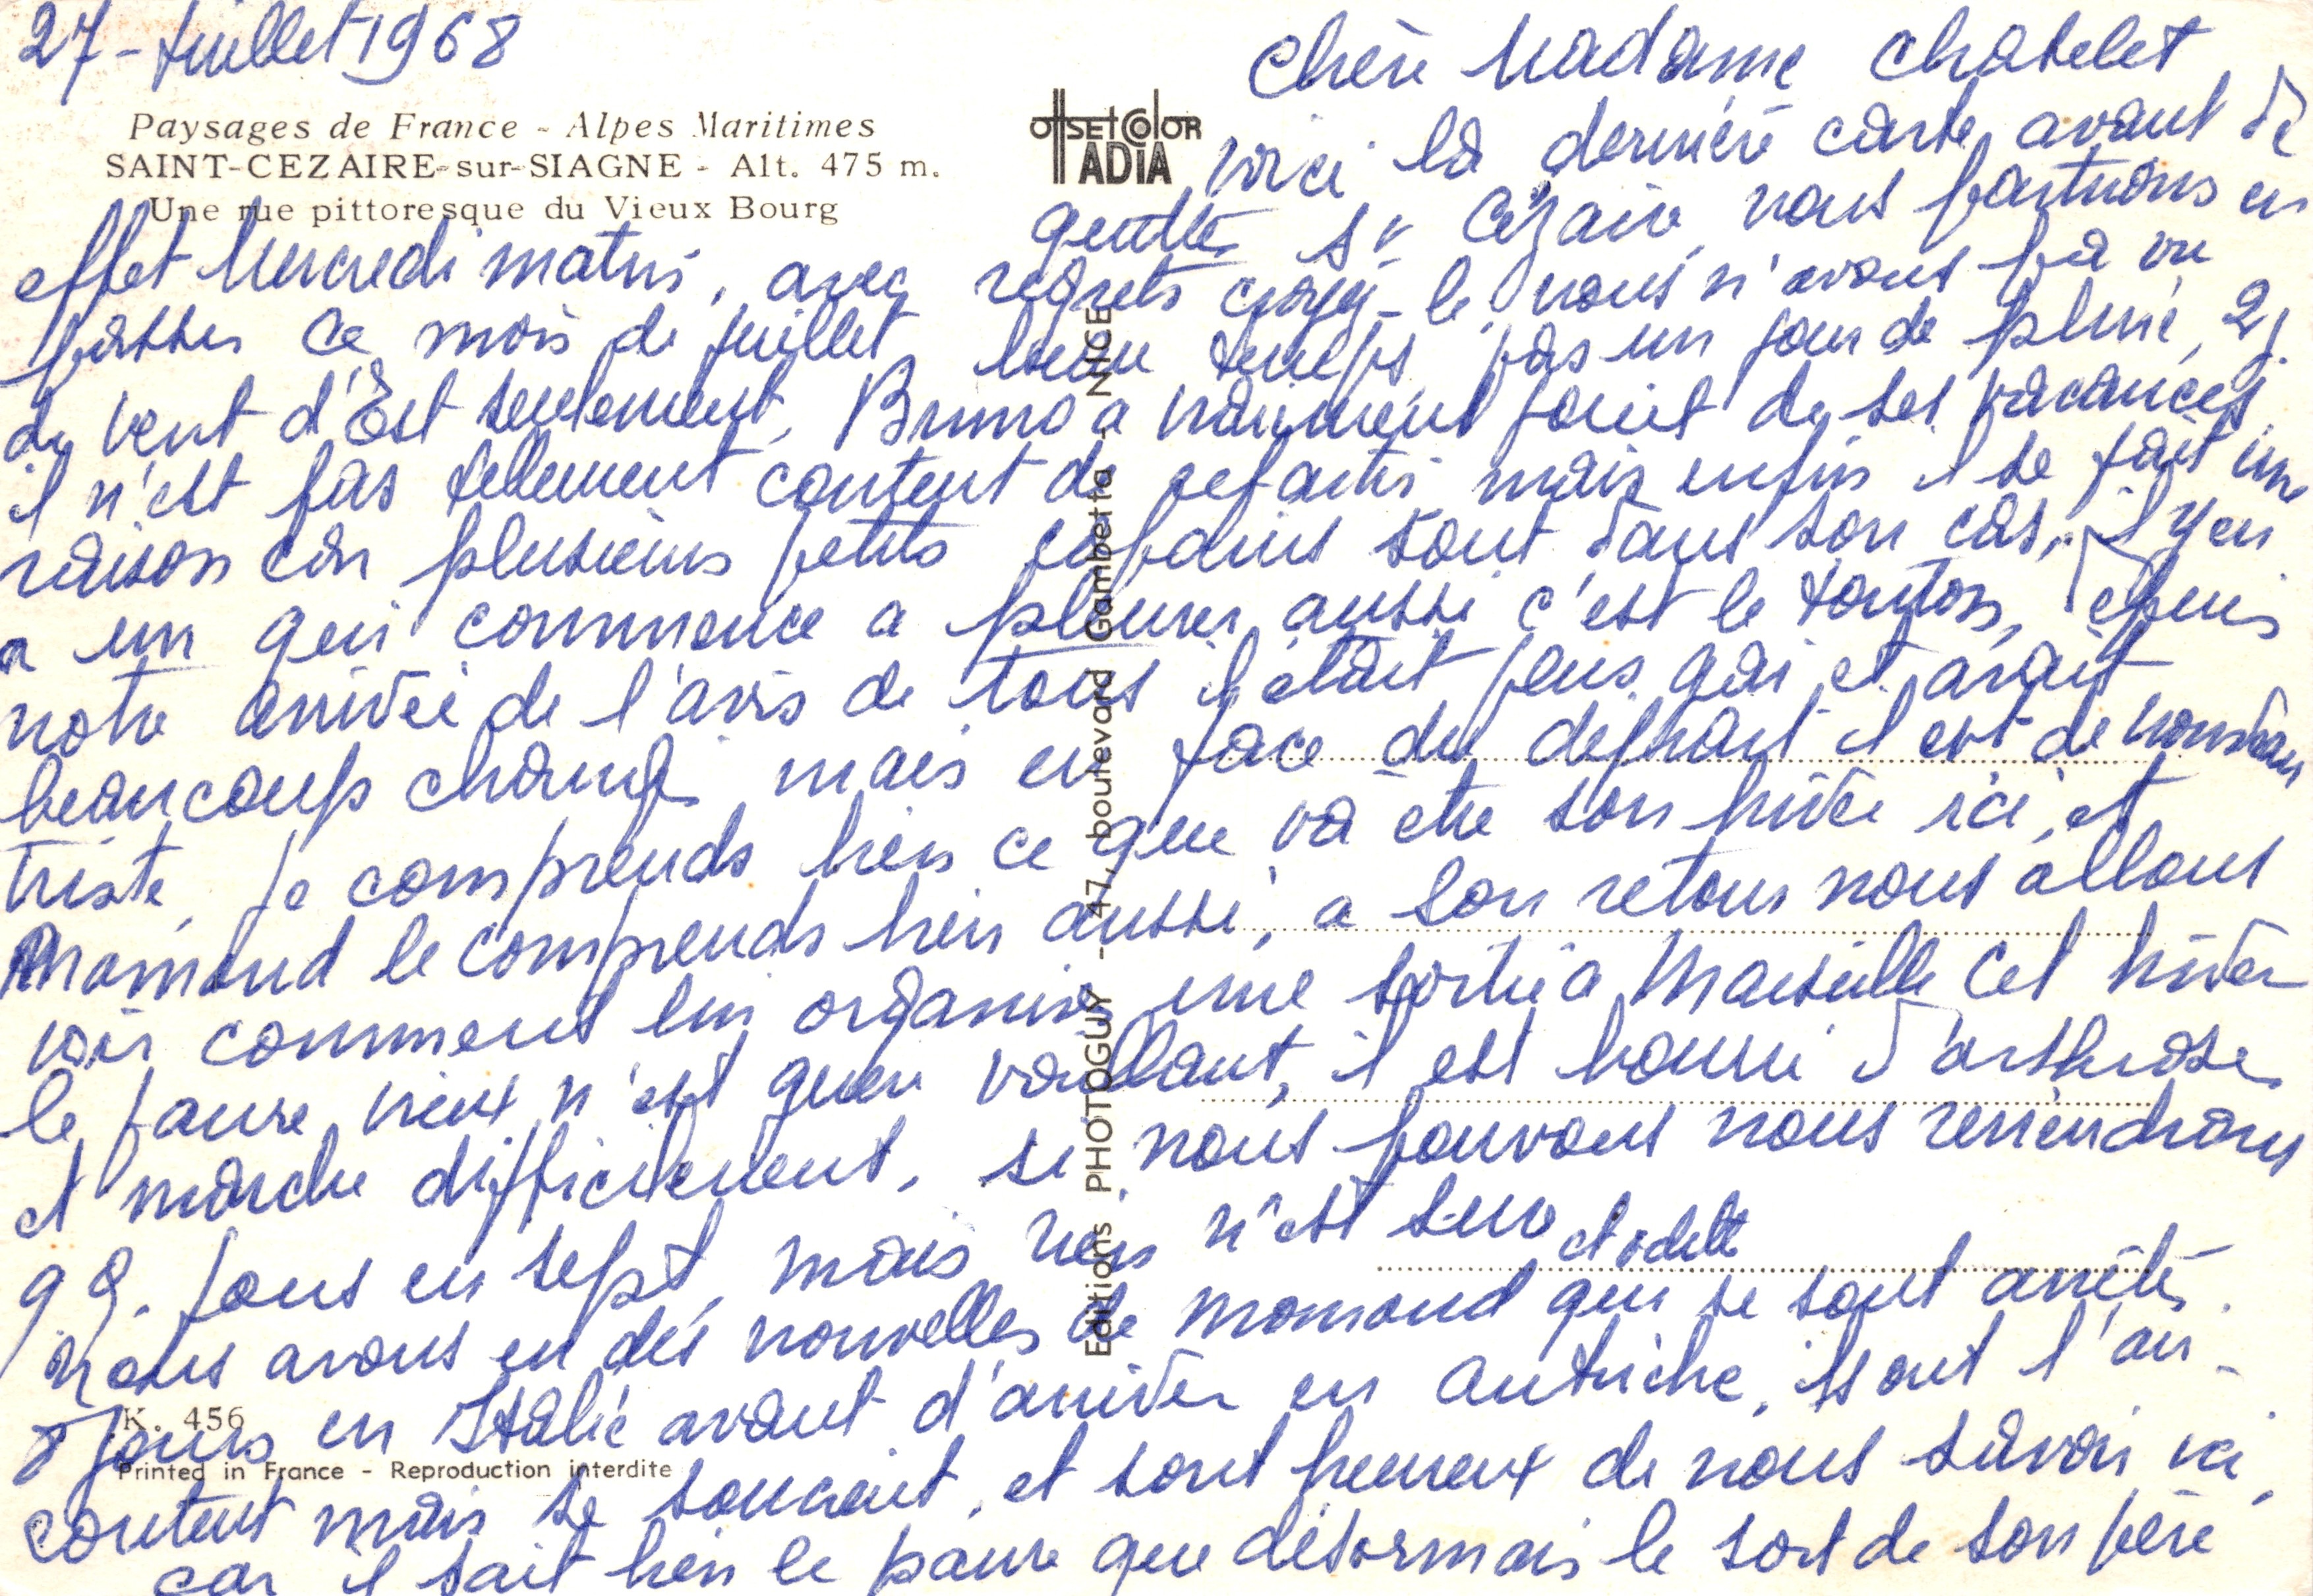 27 - Juillet 1968
Paysages de France - Alpes Maritimes
SAINT-CEZAIRE-sur-SIAGNE - Alt. 475 m.
Une rue pittoresque du Vieux Bourg
OffSEt COlOR
ADIA
Chère Madame Chatelet
voici la dernière carte avant de
quitter St Cézaire, nous partirons en
effet Mercredi matin, avec regrets croyez-le, nous n'avons pa vu
passer ce mois de juillet beau temps pas un jour de pluie, 2 j.
de vent d'Est seulement, Bruno a vraiment jouit de ses vacances,
il n'est pas tellement content de repartir mais enfin il se fait une
raison car plusieurs petits copains sont dans son cas, il y en
a un qui commence a pleurer aussi c'est le tonton, depuis
notre arrivée de l'avis de tous il était plus gai et avait
beaucoup changé mais en face du départ il est de nouveau
triste, je comprends bien ce que va être son hiver ici, et
Momond le comprends bien aussi, a son retour nous allons
voir comment lui organiser une sortie a Marseille cet hiver
le pauvre vieux n'est guere vaillant, il est bourri d'arthrose
et marche difficilement, si nous pouvons nous reviendrons
q q. jours en sept, mais rien n'est sur
et odette
Nous avons eu des nouvelles de Momond qui se sont arrêtés
8 jours en Italie avant d'arriver en Autriche, ils ont l'air
content mais se soucient, et sont heureux de nous savoir ici,
car il sait bien le pauvre que désormais le sort de son père
K. 456
Printed in France - Reproduction interdite
Editions PHOTOGUY - 47, boulevard Gambetta - NICE